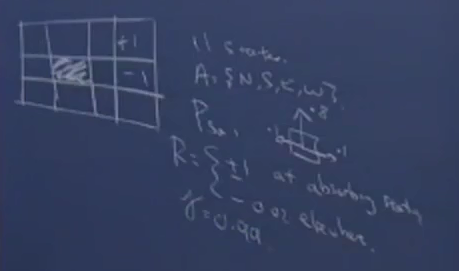 +1
-1
11 states.
A = {N, S, E, W}.
P_sa,
.8
.1
.1
R = { ±1 at absorbing states
-0.02 elsewhere.
γ = 0.99